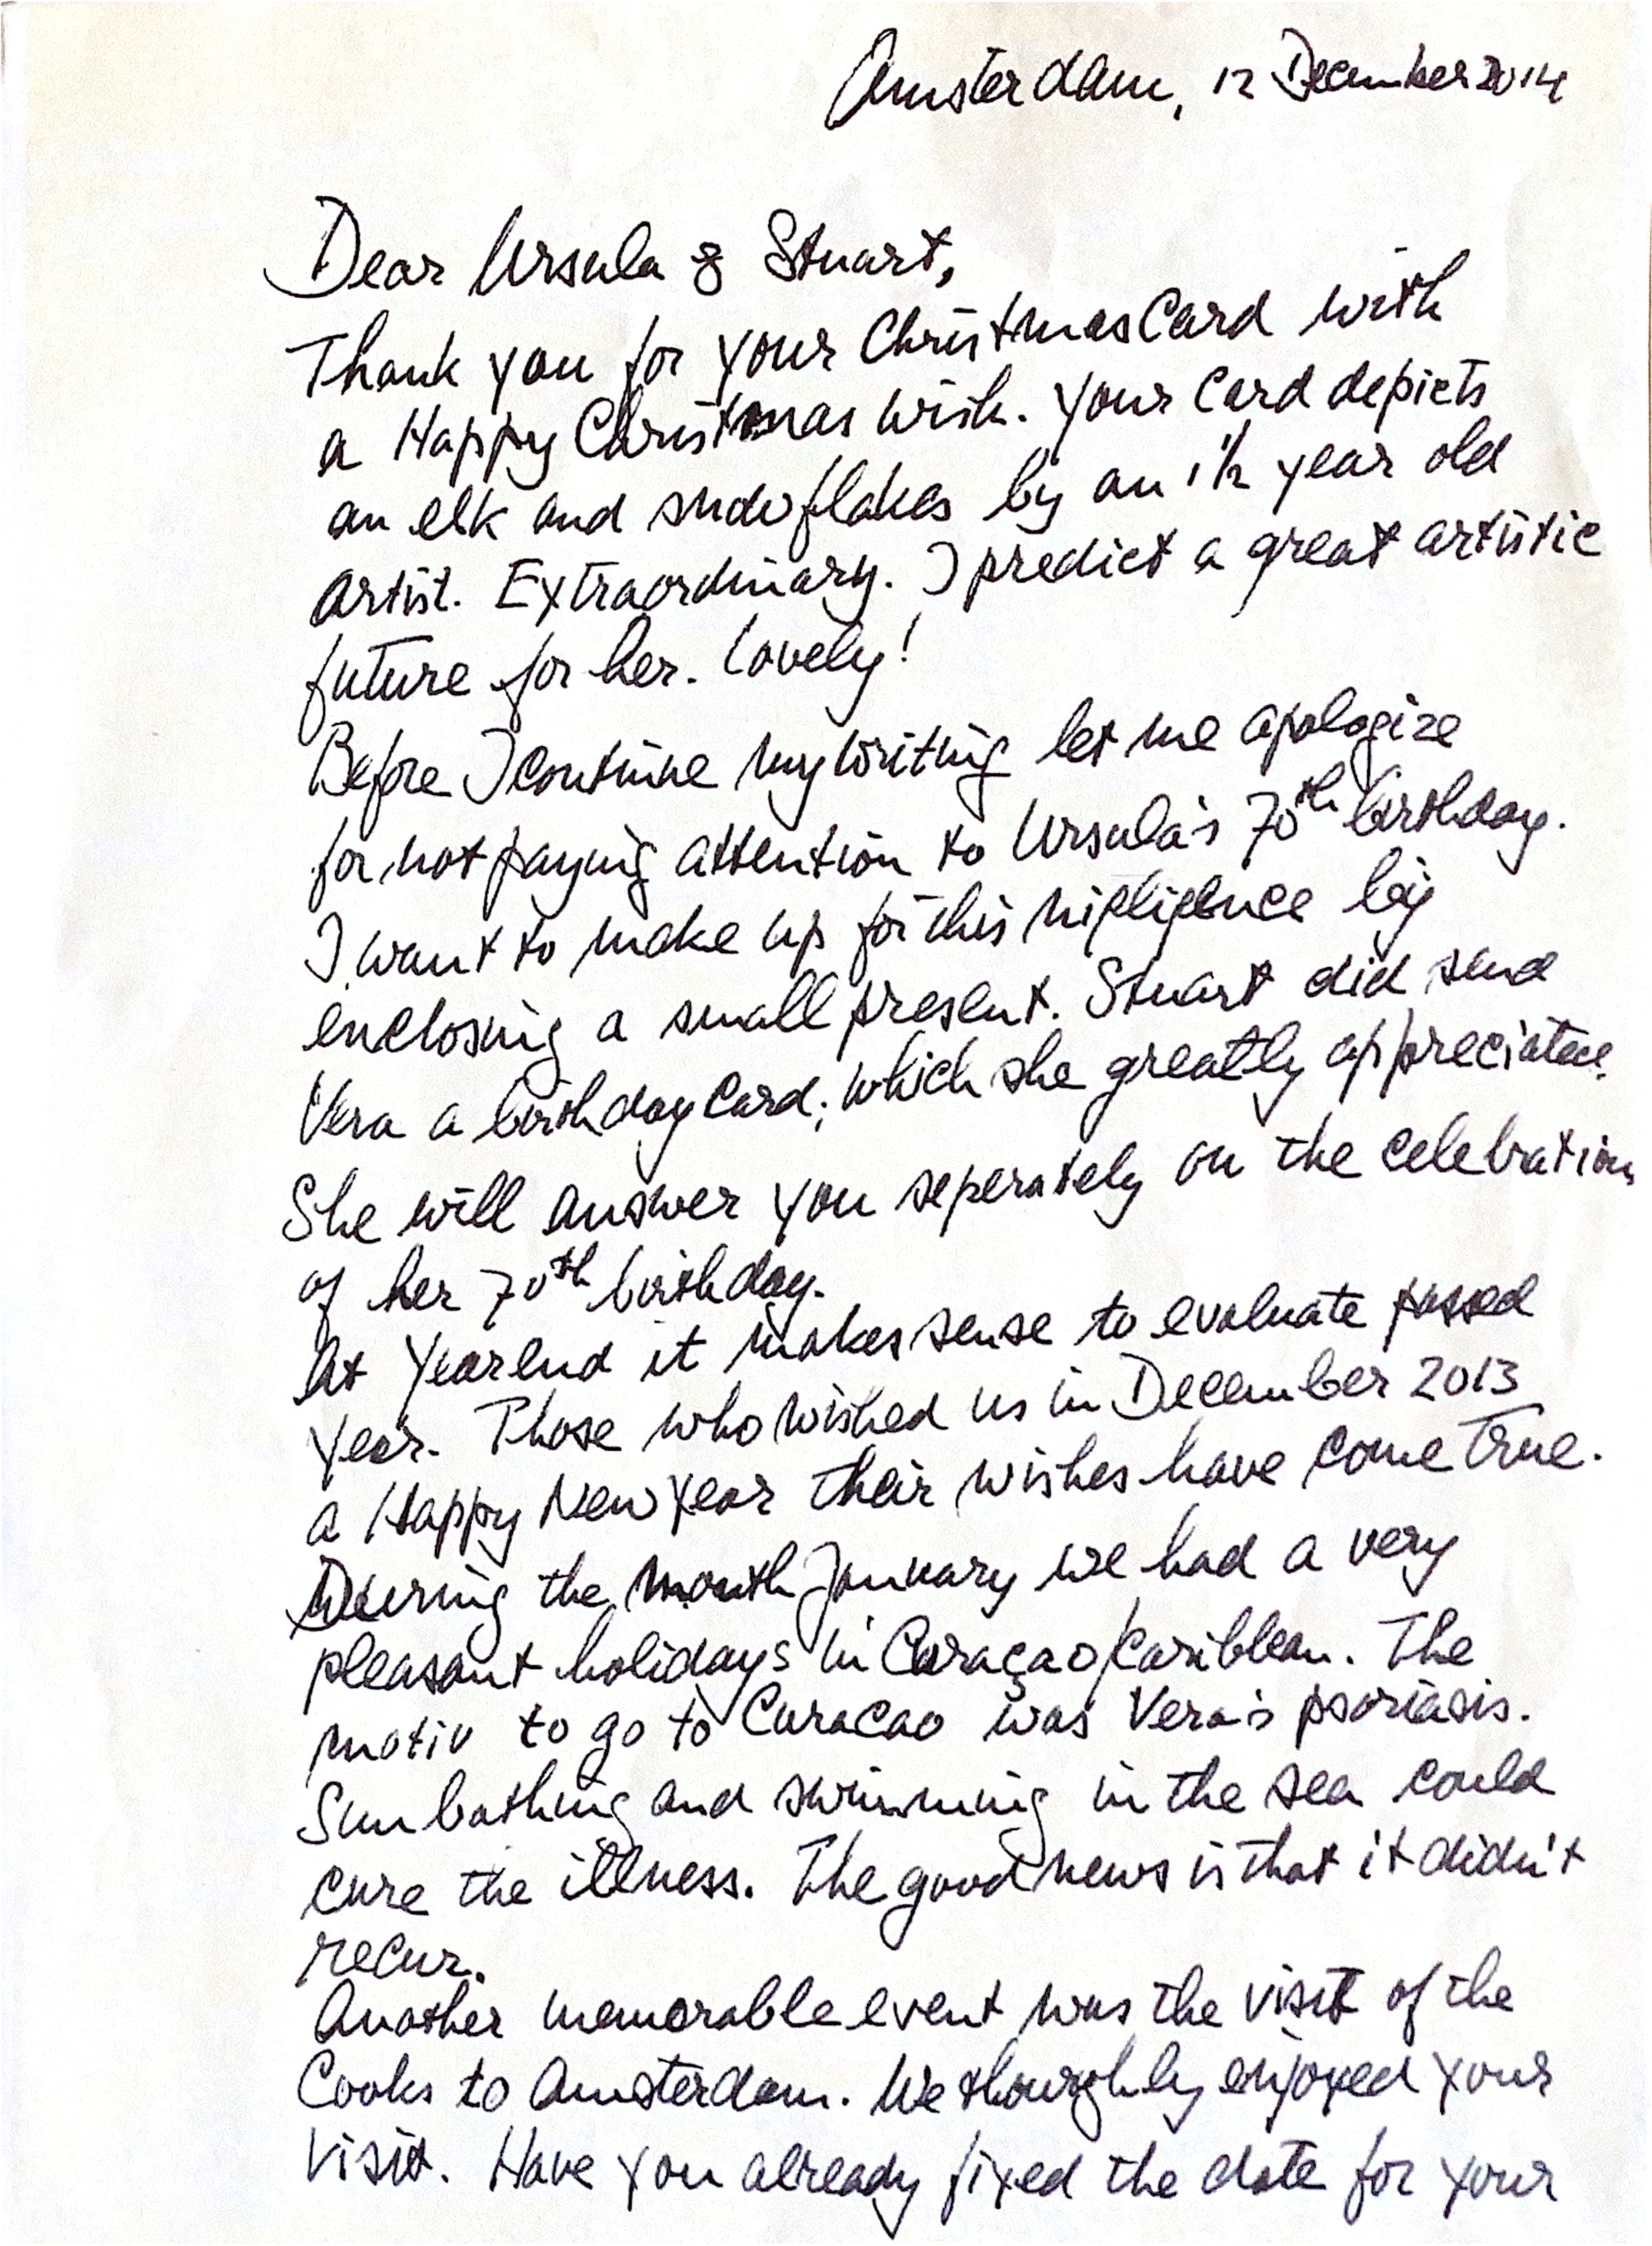 Amsterdam, 12 December 2014
Dear Ursula & Stuart,
Thank you for your Christmas Card with
a Happy Christmas wish. Your Card depicts
an elk and snowflakes by an 1½ year old
artist. Extraordinary. I predict a great artistic
future for her. Lovely!
Before I continue my writing let me apologize
for not paying attention to Ursula's 70th birthday.
I want to make up for this nigligence by
enclosing a small present. Stuart did send
Vera a birthday card, which she greatly appreciated.
She will answer you seperately on the celebration
of her 70th birthday.
At Year end it makes sense to evaluate passed
Year. Those who wished us in December 2013
a Happy New Year their wishes have come true.
During the month January we had a very
pleasant holidays in Curaçao/Caribbean. The
motiv to go to Curacao was Vera's psoriasis.
Sun bathing and swimming in the sea could
cure the illness. The good news is that it didn't
recur.
Another memorable event was the visit of the
Cooks to Amsterdam. We thourghly enjoyed your
visit. Have you already fixed the date for your